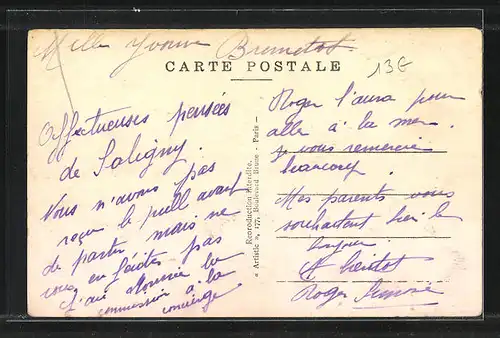 Melle Yvonne
CARTE POSTALE
13€
Affectueuses pensées
de Saligny.
Nous n'avons pas
reçu le pull avant
de partir mais ne
vous en faites pas
j'ai donné la
commission à la
concierge
Reproduction interdite.
« Artistic », 177, Boulevard Brune - Paris -
Roger l'aura pour
allé à la mer.
je vous remercie
beaucoup
Mes parents vous
souhaitent bien le
bonjour.
A bientôt
Roger